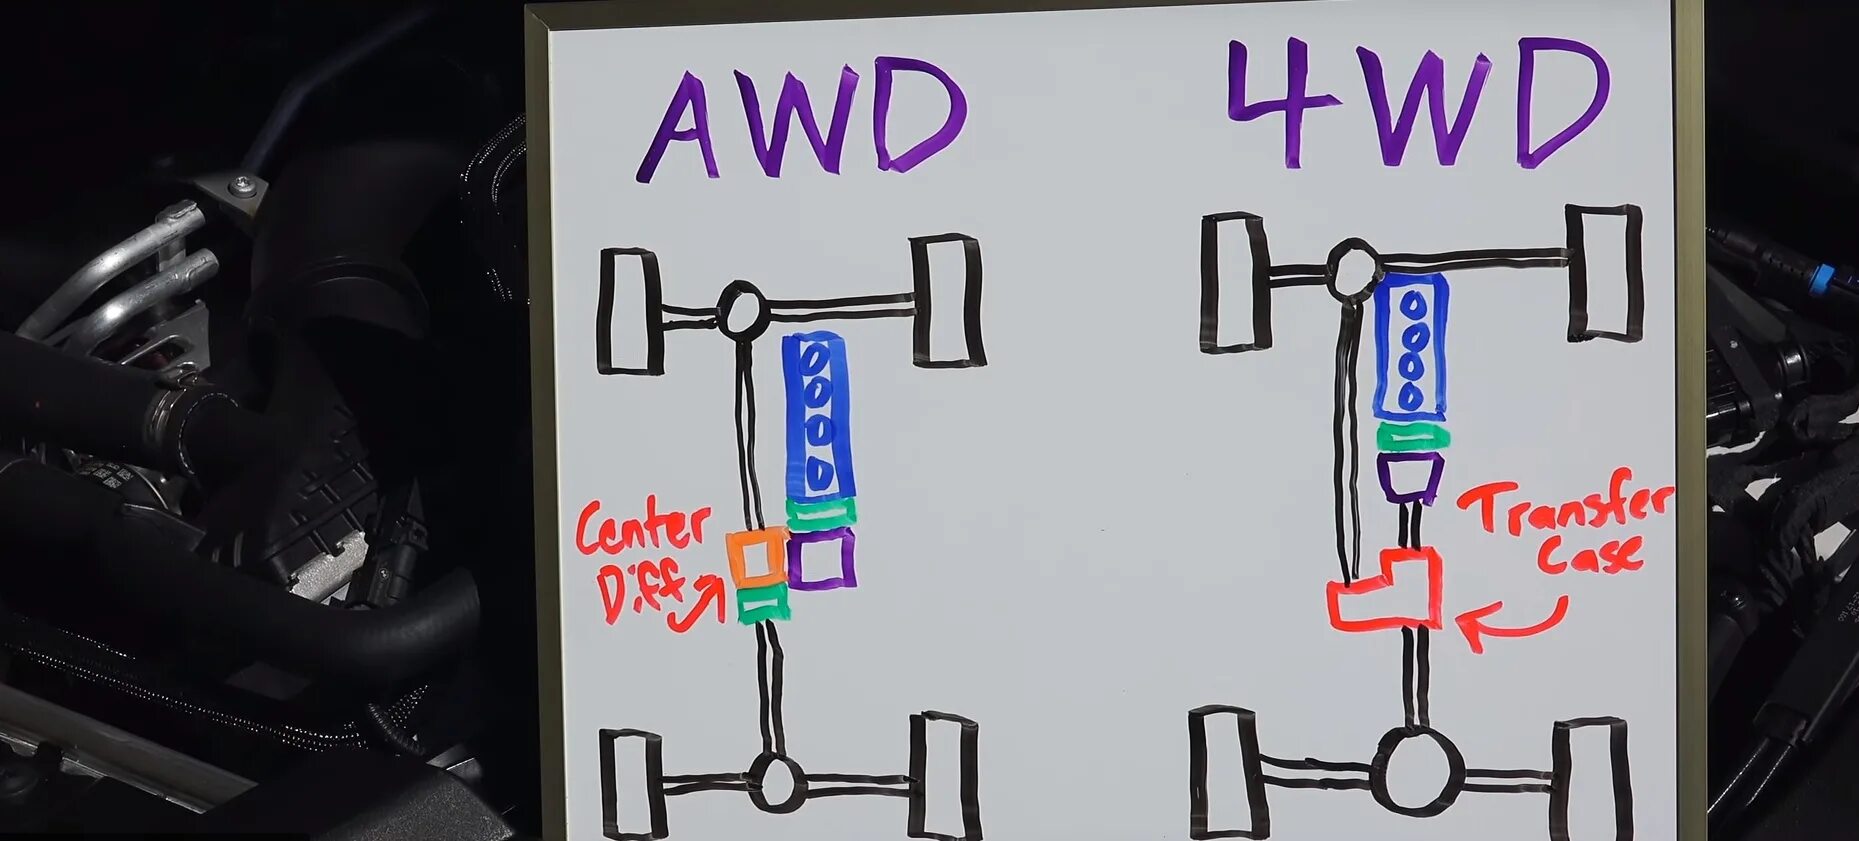 AWD
4WD
Center
Diff
Transfer
Case